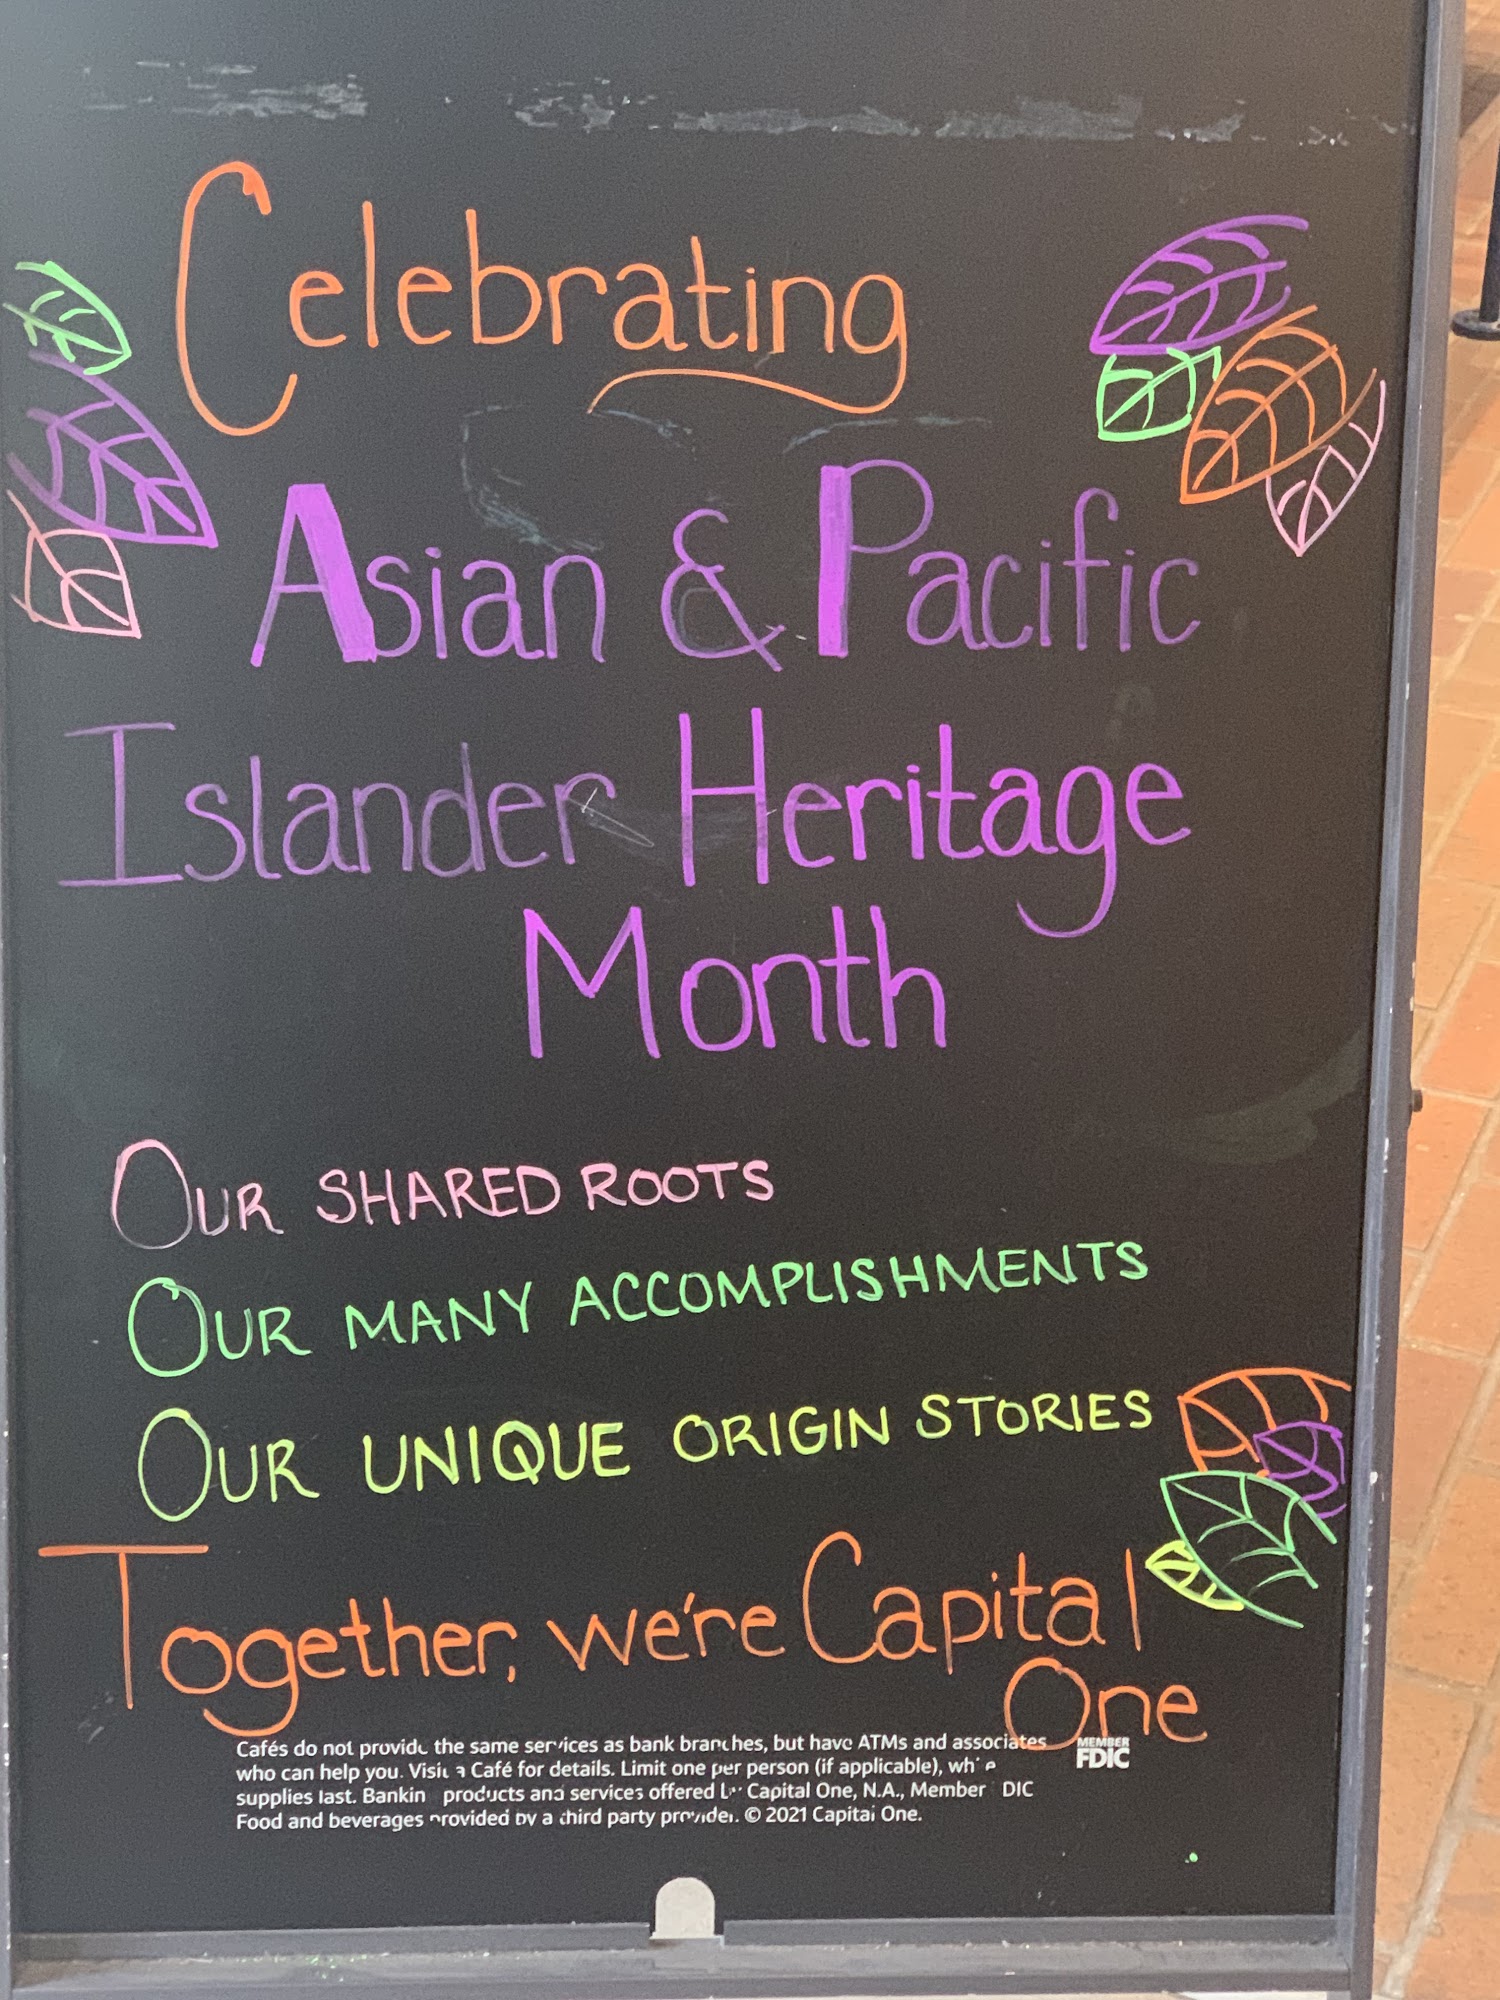 Celebrating
Asian & Pacific
Islander Heritage
Month
OUR SHARED ROOTS
OUR MANY ACCOMPLISHMENTS
OUR UNIQUE ORIGIN STORIES
Together, we're Capital
One
Cafés do not provide the same services as bank branches, but have ATMs and associates
who can help you. Visit a Café for details. Limit one per person (if applicable), while
supplies last. Bankin products and services offered by Capital One, N.A., Member DIC
Food and beverages provided by a third party provider. © 2021 Capital One.
MEMBER
FDIC